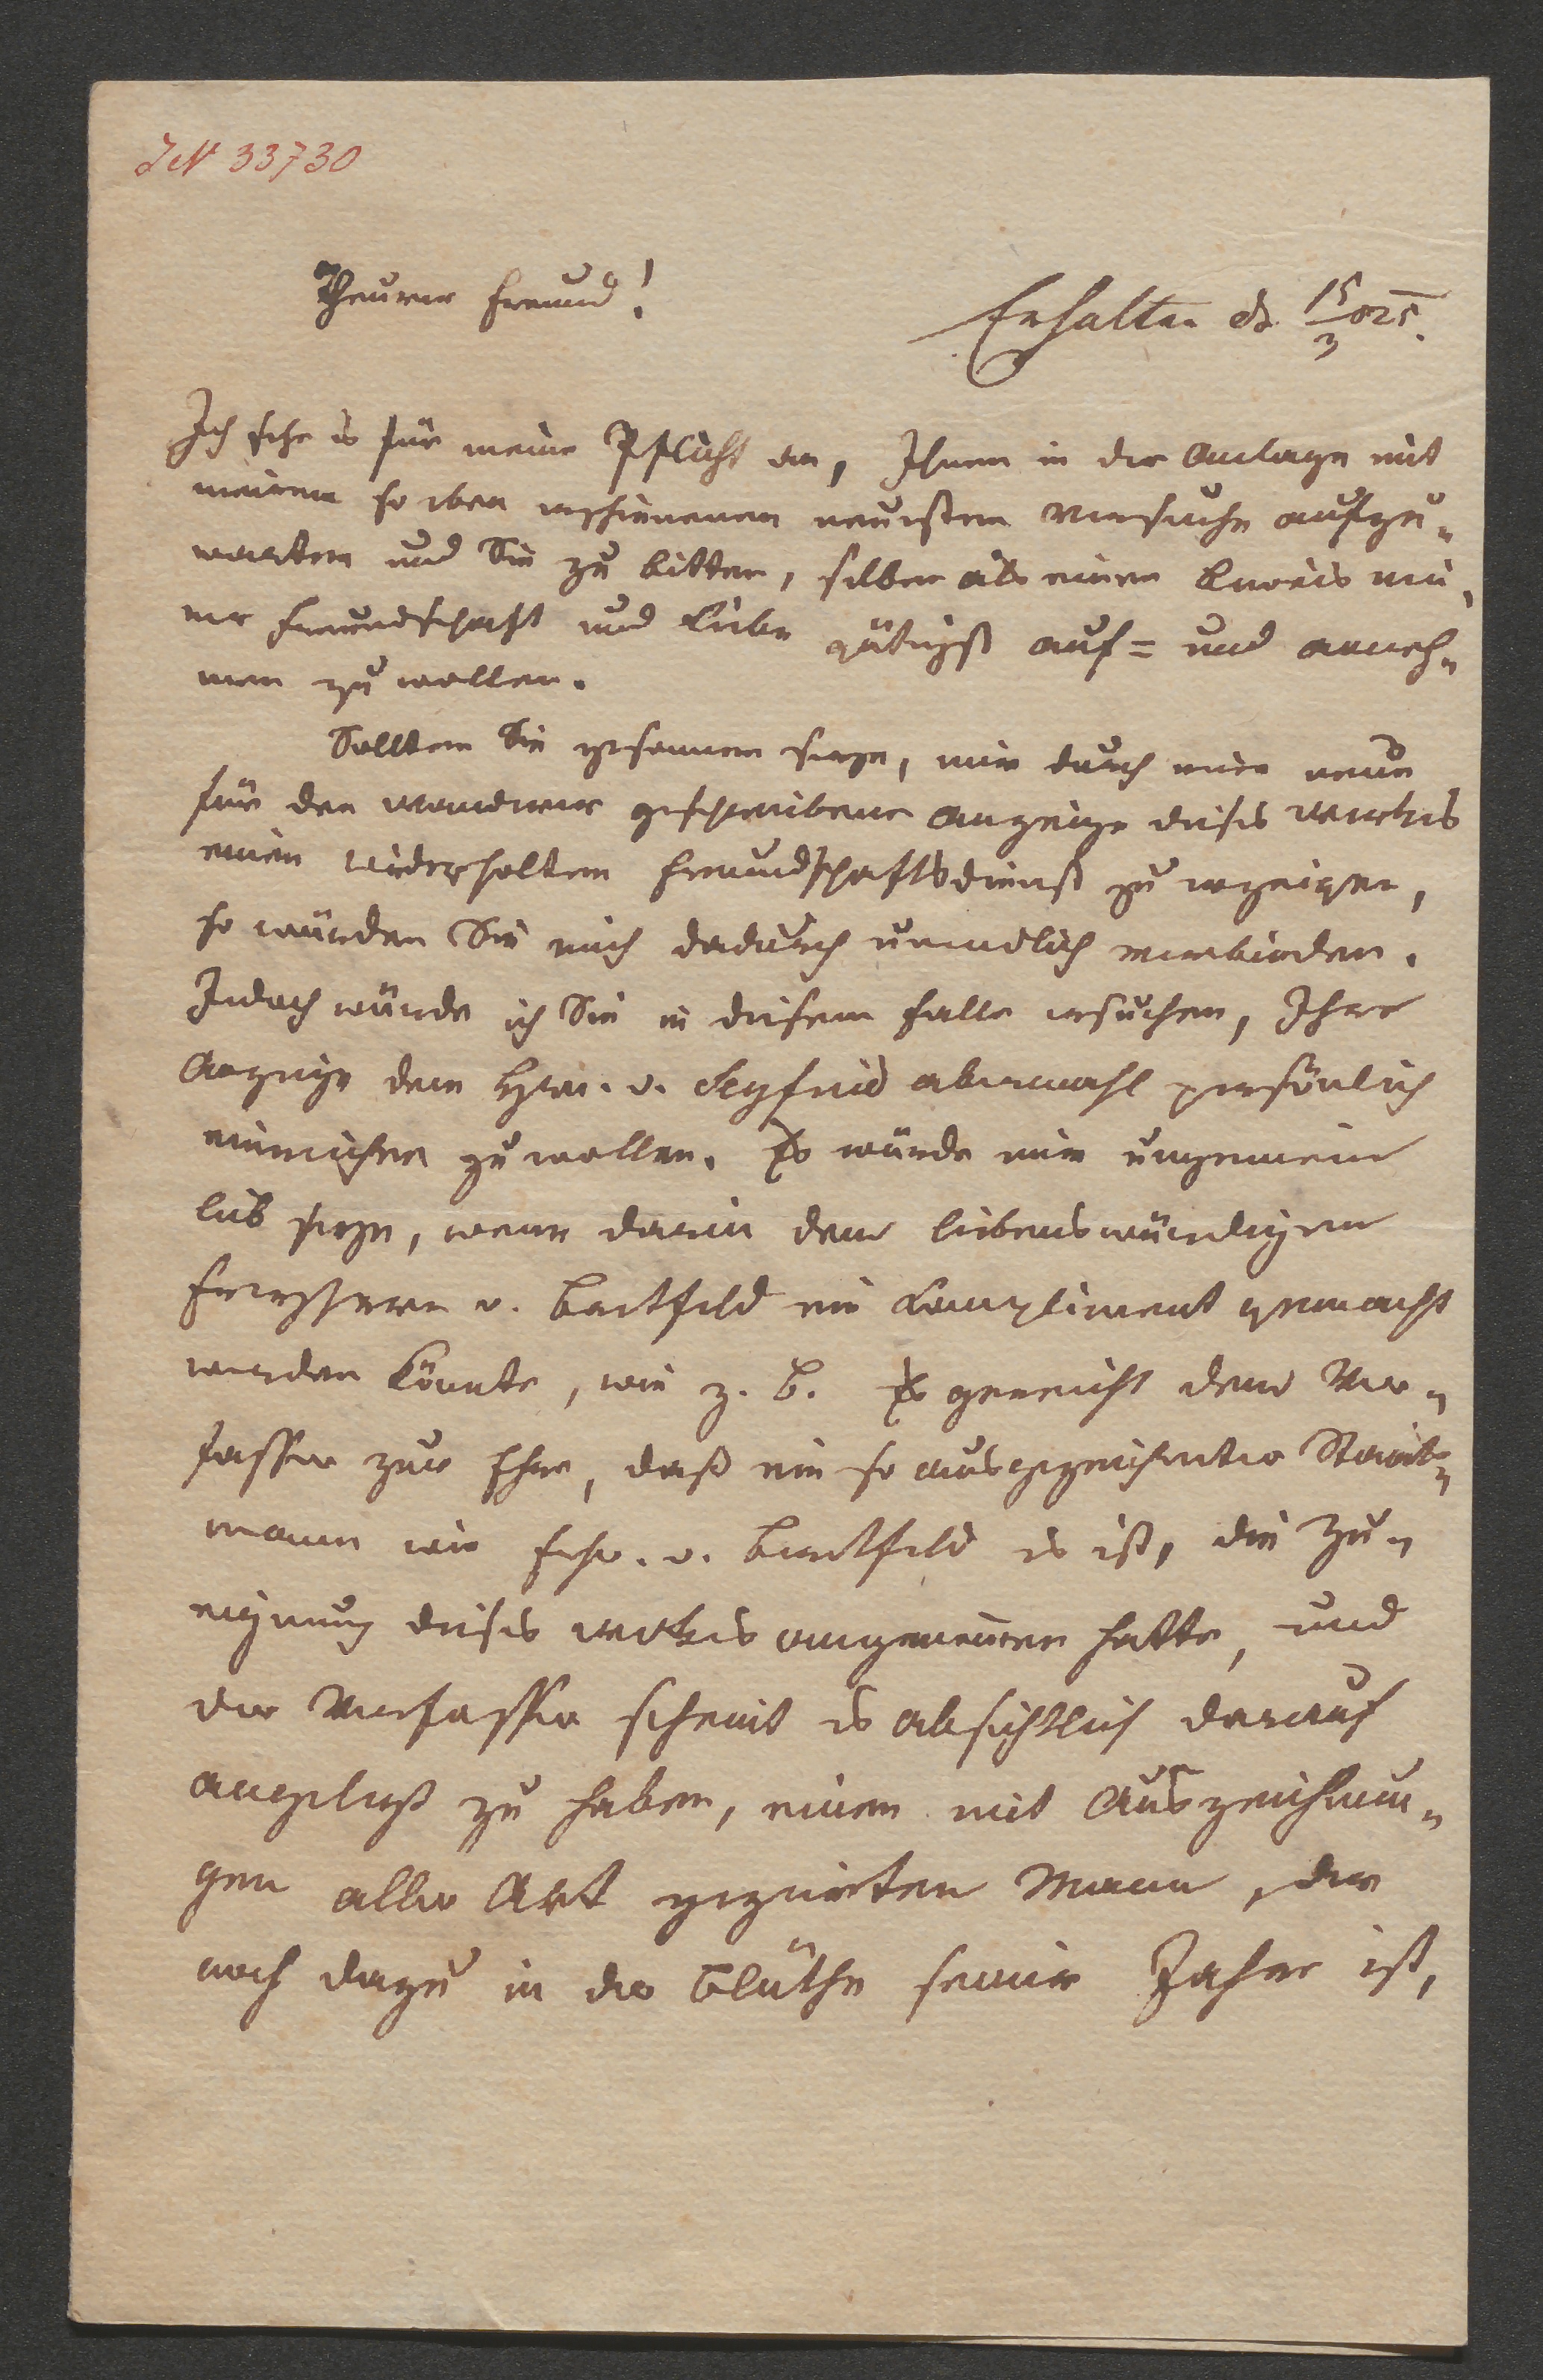 IN 33730
Theurer Freund!
Erhalten d. 15/3 825.
Ich sehe es für meine Pflicht an, Ihnen in der Anlage mit
meinem so eben erschienenen neuesten Versuche aufzu-
warten und Sie zu bitten, selben als einen Beweis mei-
ner Freundschaft und Liebe gütigst auf= und anneh-
men zu wollen.
Sollten Sie gesonnen seyn, mir durch eine neue
für den Wanderer geschriebene Anzeige dieses Werkes
einen wiederholten Freundschaftsdienst zu erzeigen,
so würden Sie mich dadurch unendlich verbinden.
Jedoch würde ich Sie in diesem Falle ersuchen, Ihre
Anzeige dem Hrn. v. Seyfried abermahl persönlich
einreichen zu wollen. Es würde mir ungemein
lieb seyn, wenn darin dem liebenswürdigen
Freyherrn v. Bartfeld ein Compliment gemacht
werden könnte, wie z. B. Es gereicht dem Ver-
fasser zur Ehre, daß ein so ausgezeichneter Staats-
mann wie Frhr. v. Bartfeld es ist, die Zu-
eignung dieses Werkes angenommen hatte, und
der Verfasser scheint es absichtlich darauf
angelegt zu haben, einen mit Auszeichnun-
gen aller Art gezierten Mann, der
noch dazu in der Blüthe seiner Jahre ist,